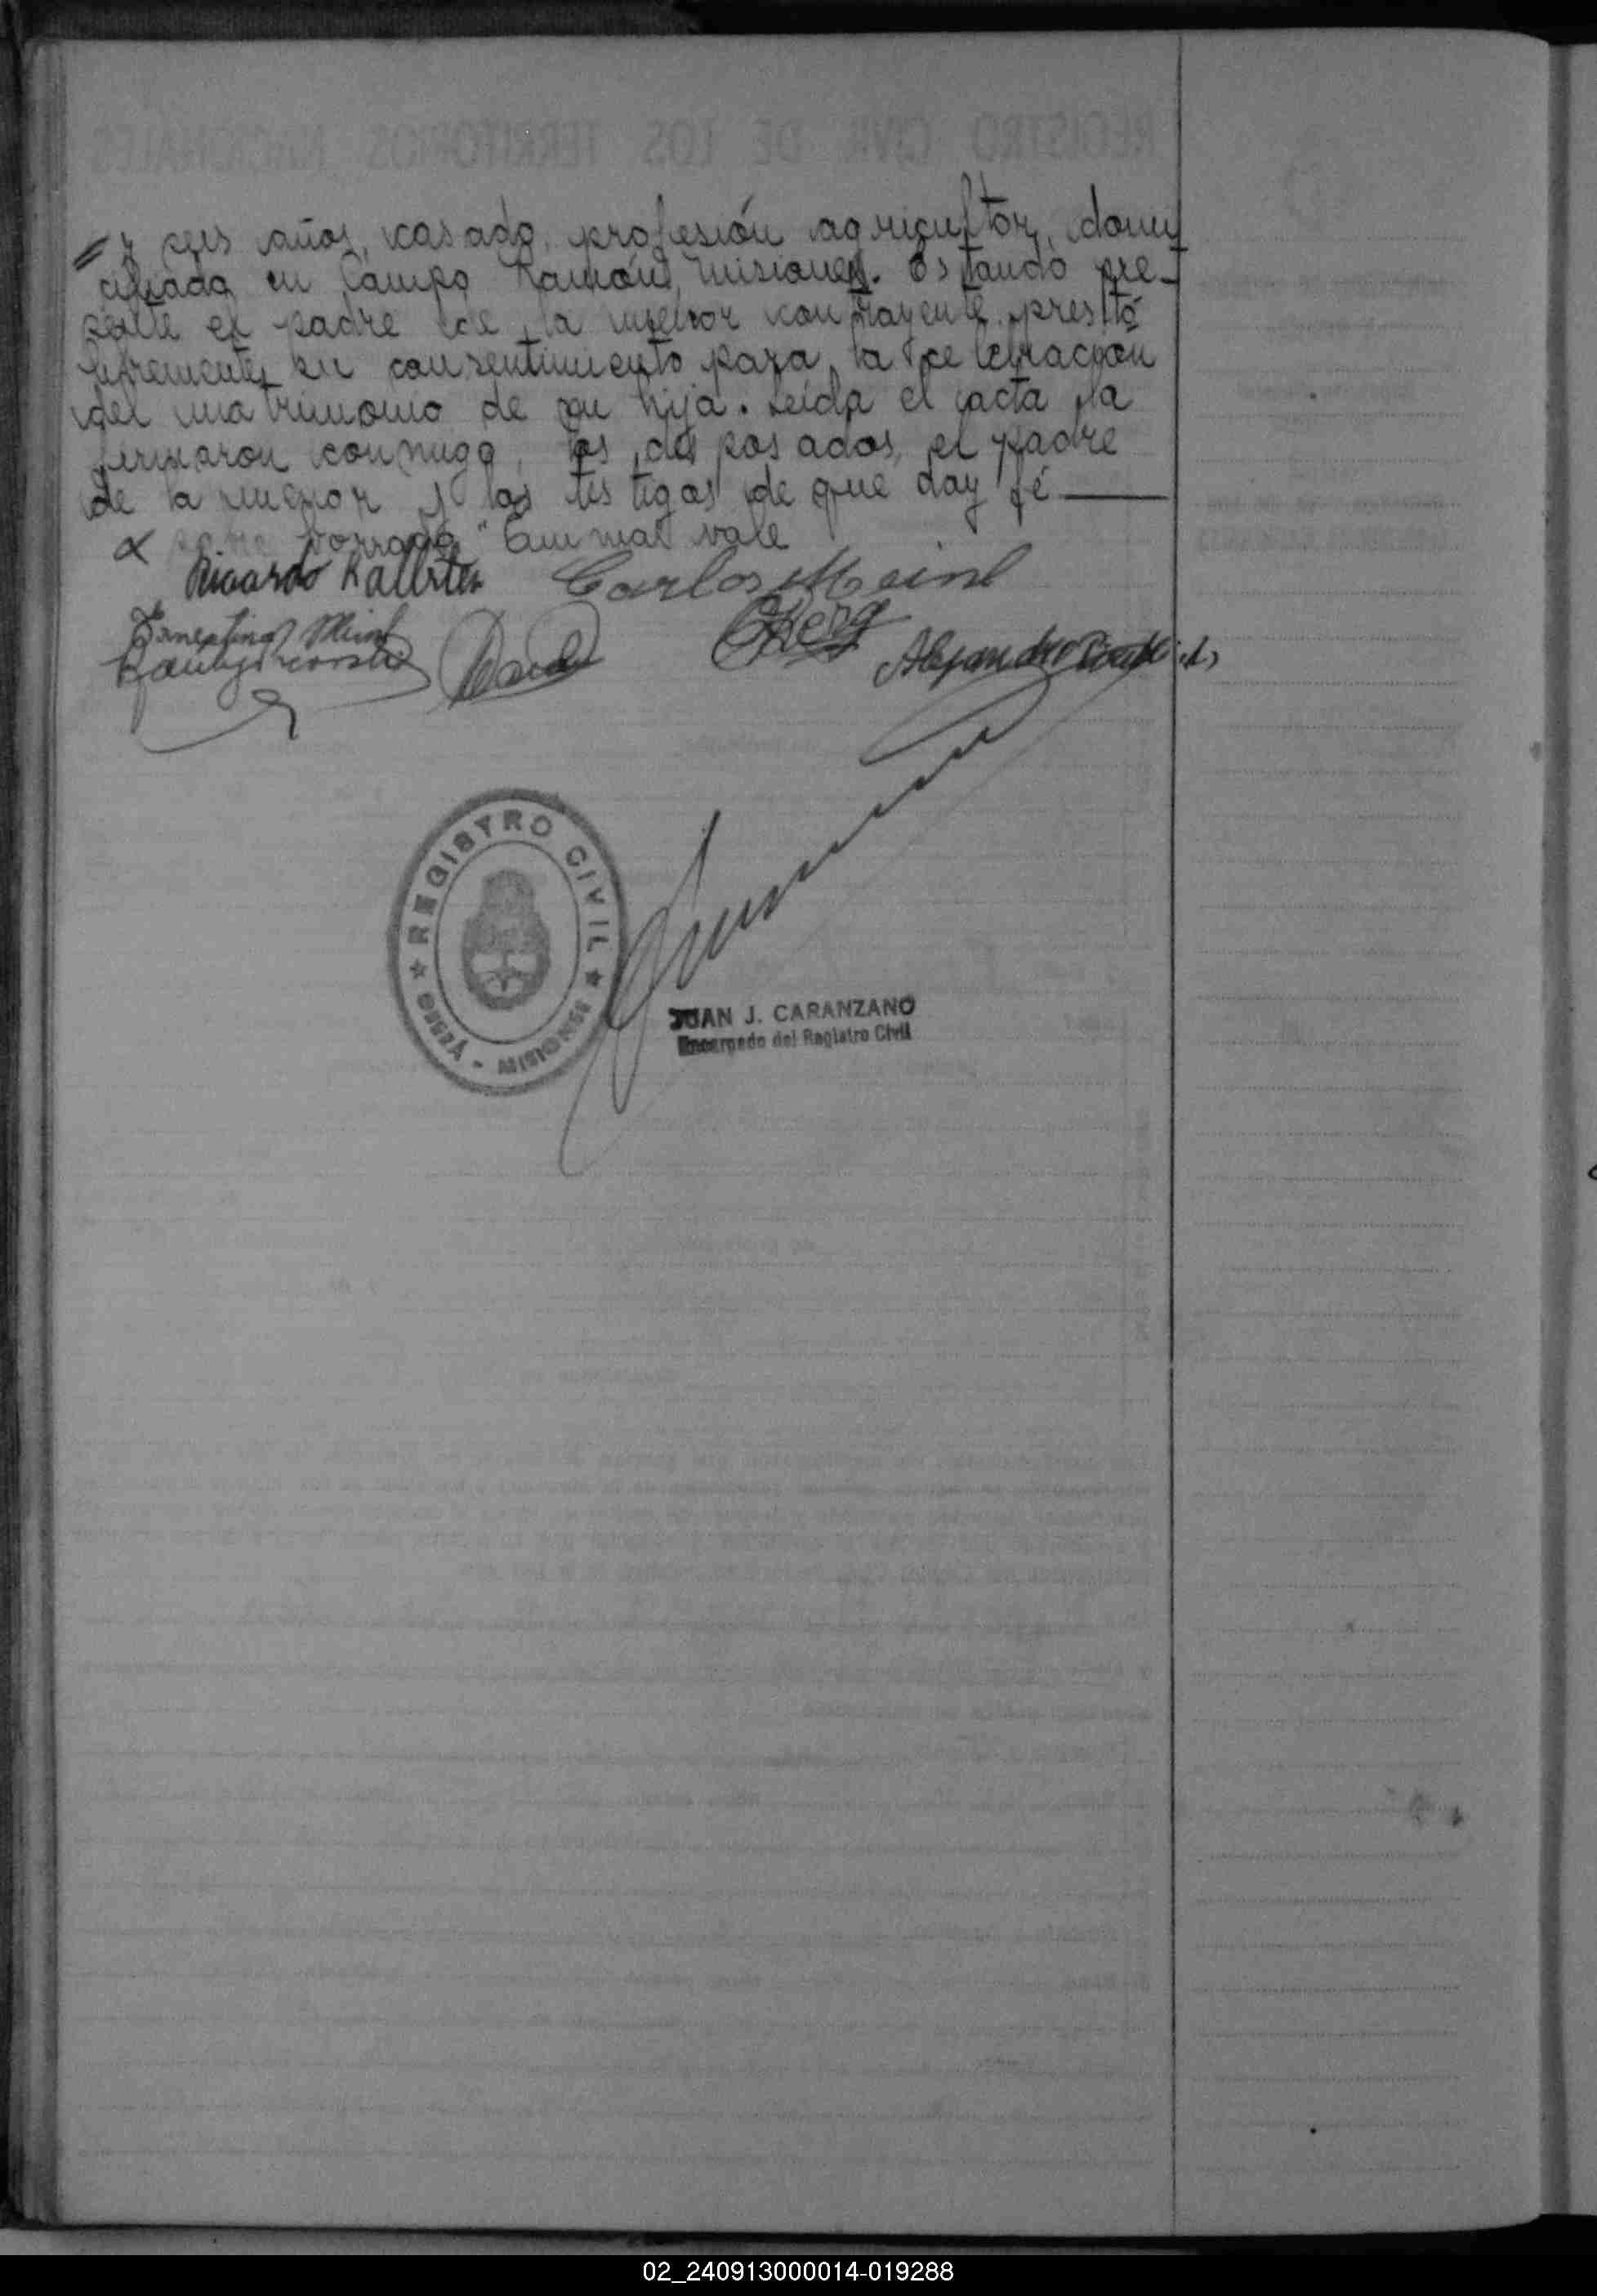 y seis años, casado, profesión agricultor, domi
ciliado en Campo Ramón, Misiones. Estando pre-
sente el padre de la menor contrayente prestó
libremente su consentimiento para la celebración
del matrimonio de su hija. Leída el acta la
firmaron conmigo, los desposados, el padre
de la menor y los testigos de que doy fé
borrado vale
Ricardo Carlos Meinl
Ernestina Meinl
Berg
Alejandro
REGISTRO CIVIL
OBERÁ - MISIONES
JUAN J. CARANZANO
Encargado del Registro Civil
02_240913000014-019288